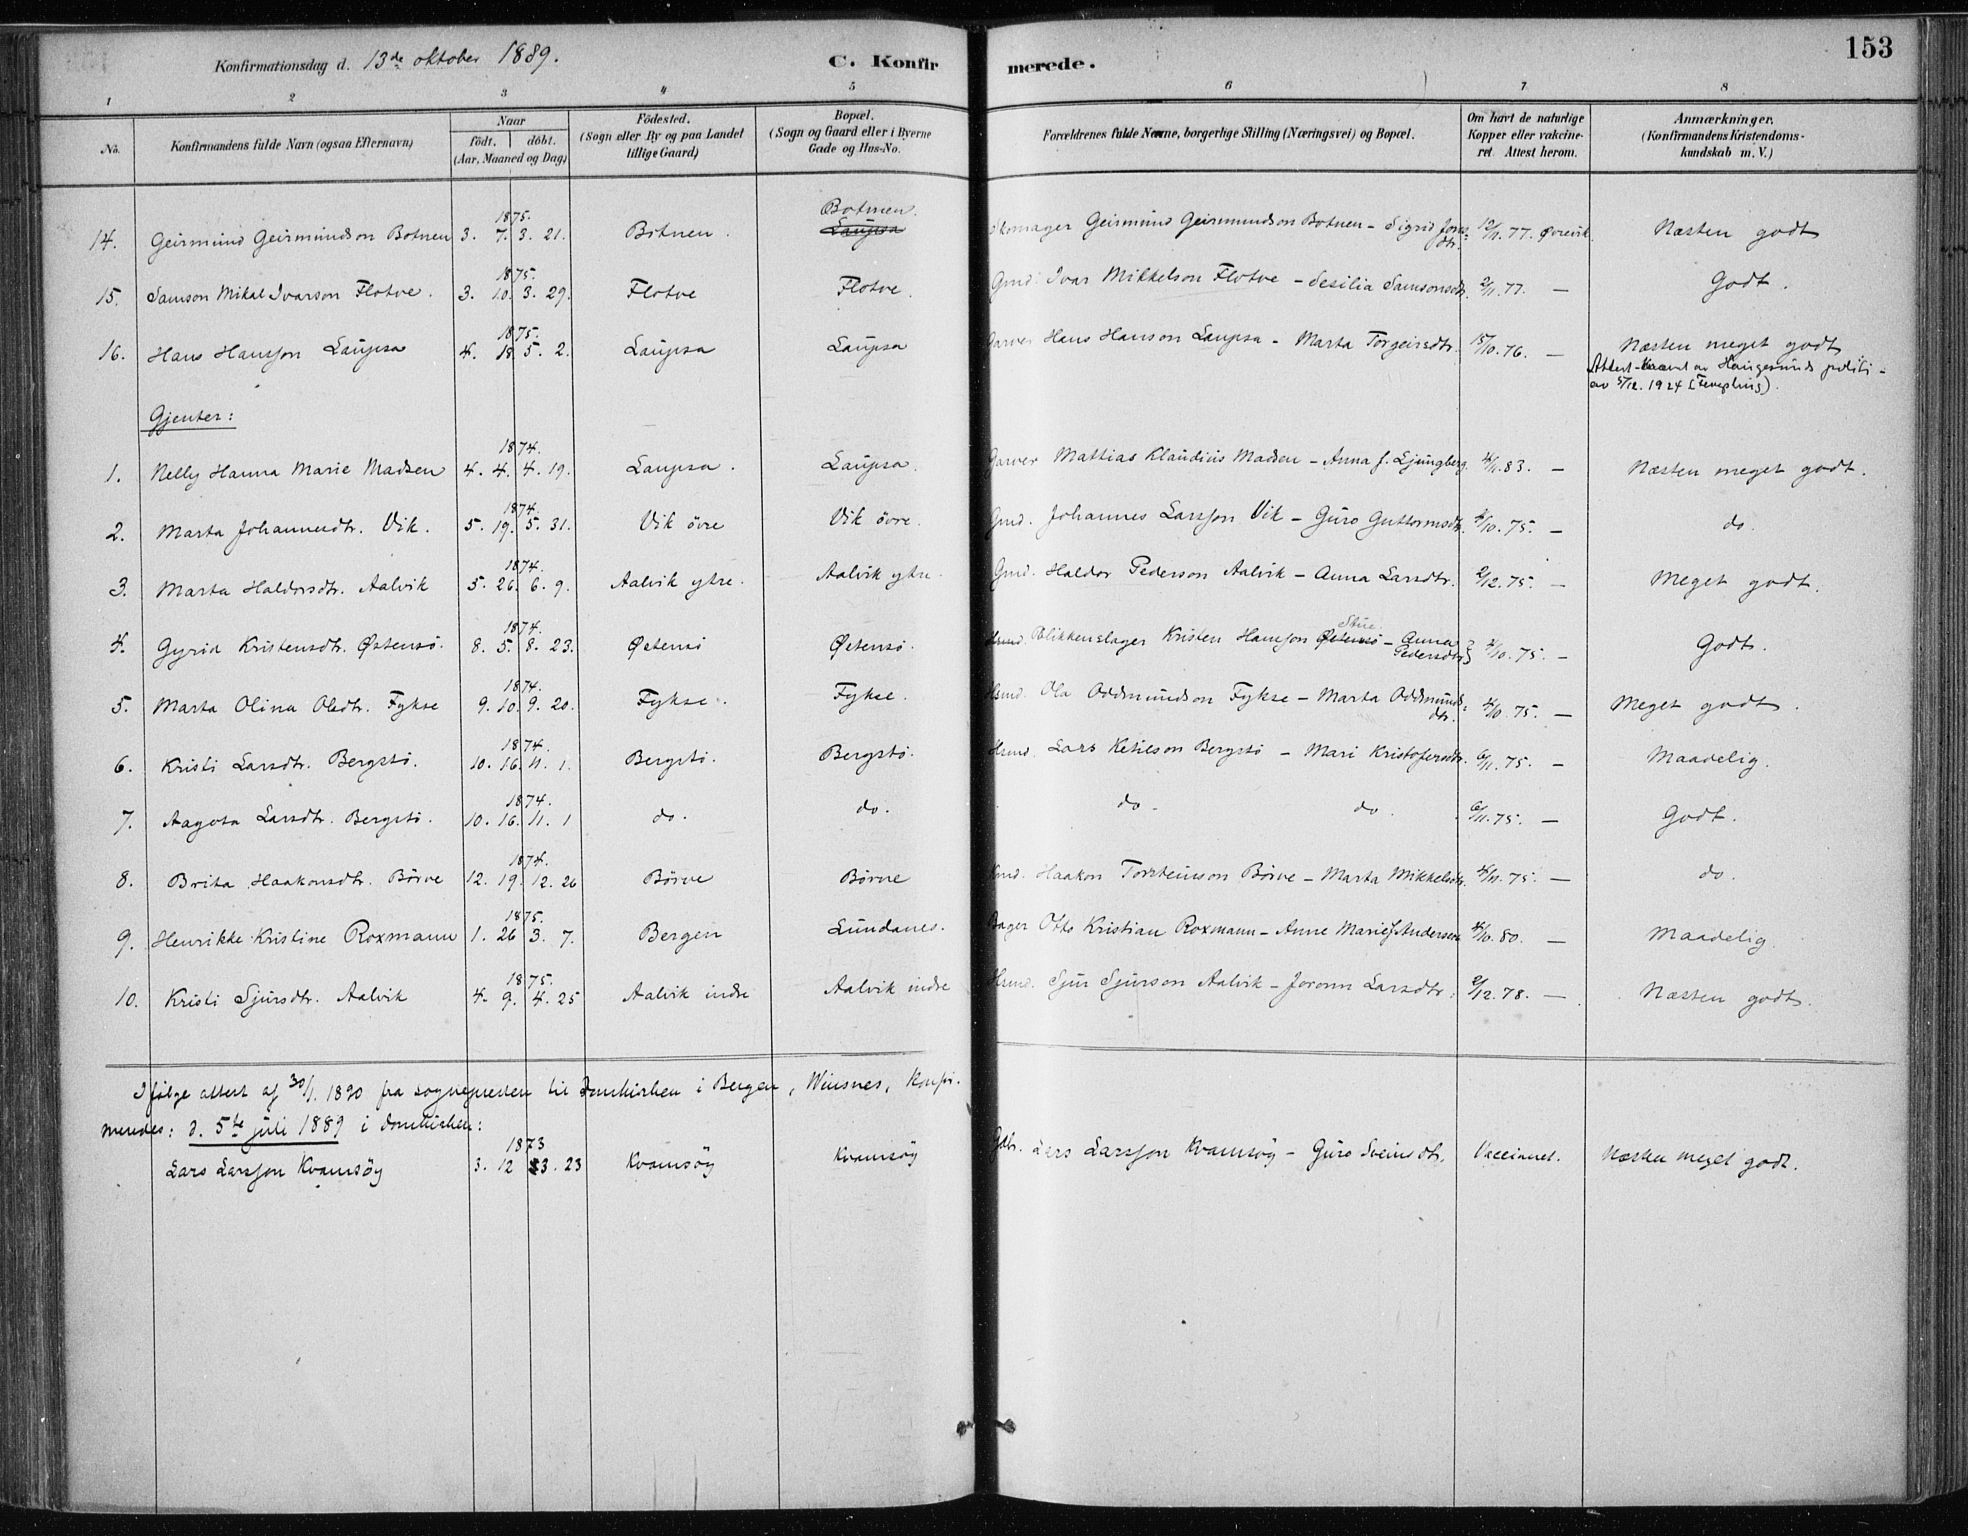 153
Konfirmationsdag d. 13de oktober 1889. C. Konfirmerede.
1 2 3 4 5 6 7 8
No. Konfirmandens fulde Navn (ogsaa Efternavn) Naar födt. döbt. (Aar, Maaned og Dag) Födested. (Sogn eller By og paa Landet tillige Gaard) Bopæl. (Sogn og Gaard eller i Byerne Gade og Hus-No. Forældrenes fulde Navne, borgerlige Stilling (Næringsvei) og Bopæl. Om havt de naturlige Kopper eller vakcineret. Attest herom. Anmærkninger. (Konfirmandens Kristendomskundskab m. V.)
14. Geirmund Geirmundson Botnen 1875. 3. 7. 3. 21. Botnen. Botnen. Laupsa Skomager Geirmund Geirmundson Botnen - Sigrid Jonsdtr. 12/11. 77. Øvrevik. Næsten godt
15. Samson Mikal Ivarson Flotve. 1875. 3. 10. 3. 29. Flotve Flotve. Gmd. Ivar Mikkelson Flotve - Sesilia Samsonsdtr. 2/11. 77. — Godt.
16. Hans Hansson Laupsa 1875. 4. 18. 5. 2. Laupsa Laupsa Garver Hans Hanson Laupsa - Marta Torgeirsdtr. 15/10. 76. — Næsten meget godt
Attest av Haugesunds politi - av 5/12. 1924
Gjenter:
1. Nelly Hanna Marie Madsen 1874. 4. 4. 4. 19. Laupsa. Laupsa. Garver Mattias Klaudius Madsen - Anna J. Ljungberg. 4/11. 83. — Næsten meget godt.
2. Marta Johannesdtr. Vik. 1874. 5. 19. 5. 31. Vik övre Vik övre. Gmd. Johannes Larsson Vik - Guro Guttormsdtr. 4/10. 75. — do.
3. Marta Haldorsdtr. Aalvik 1874. 5. 26. 6. 9. Aalvik ytre. Aalvik ytre. Gmd. Haldor Pederson Aalvik - Anna Larsdtr. 2/12. 75. — Meget godt.
4. Gyrid Kristensdtr. Østensö. 1874. 8. 5. 8. 23. Østensö Østensö. Hsmd. Blikkenslager Kristen Hansson Østensö Stue. - Anna Pedersdtr. 4/10. 75. — Godt.
5. Marta Olina Olsdtr. Fykse 1874. 9. 10. 9. 20. Fykse. Fykse. Hsmd. Ola Oddmundson Fykse - Marta Oddmundsdtr. 4/10. 75. — Meget godt.
6. Kristi Larsdtr. Bergstö. 1874. 10. 16. 11. 1. Bergstö. Bergstö. Hsmd. Lars Ketilson Bergstö - Mari Kristofersdtr. 6/11. 75. — Maadelig.
7. Aagota Larsdtr. Bergstö. 1874. 10. 16. 11. 1 do. do. do. do. 6/11. 75. — Godt.
8. Brita Haakonsdtr. Börve 1874. 12. 19. 12. 26 Börve Börve Gmd. Haakon Torsteinson Börve - Marta Mikkelsdtr. 4/11. 75. — do.
9. Henrikke Kristine Roxmann 1875. 1. 26 3. 7. Bergen Lundanes. Bager Otto Kristian Roxmann - Anne Marie J. Andersen 4/10. 80. — Maadelig.
10. Kristi Sjursdtr. Aalvik 1875. 4. 9. 4. 25 Aalvik indre Aalvik indre Hsmd. Sjur Sjurson Aalvik - Joronn Larsdtr. 2/12. 78. — Næsten godt.
Ifölge attest af 30/1. 1890 fra sognepresten til Domkirken i Bergen, Wiesnes, konfirmeredes: d. 5te juli 1889 i domkirken:
Lars Larsson Kvamsöy 1873 3. 12 3. 23 Kvamsöy Kvamsöy Gdbr. Lars Larsson Kvamsöy - Guro Sveinsdtr. Vaccineret. Næsten meget godt.